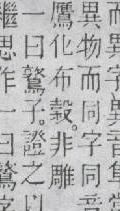 而異字異音
異物而同字同音
鷹化布穀。非雕
一曰子。證之以
繼思作一曰字